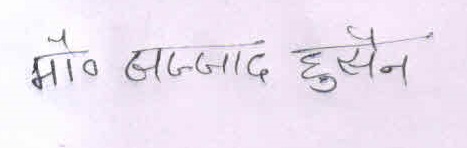 मौ० सज्जाद हुसैन